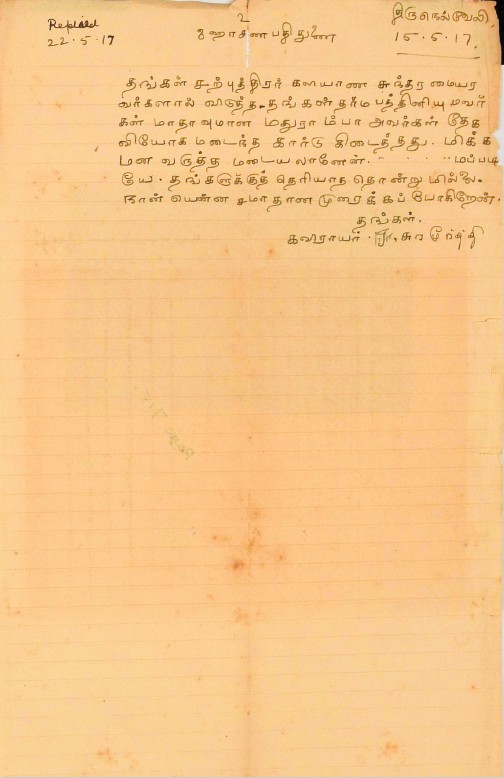 Replied
22.5.17
உ
மஹாகணபதிதுணை
திருநெல்வேலி
15.5.17.
தங்கள் சற்புத்திரர் கலயாண சுந்தரமையர
வர்களால் விடுத்த தங்கள் தர்ம பத்தினியுமவர்
கள் மாதாவுமான மதுராம்பா அவர்கள் தேத
வியோக மடைந்த கார்டு கிடைத்தது. மிக்க
மன வருத்த மடையலானேன். மப்படி
யே. தங்களுக்குத் தெரியாத தொன்று மில்லை.
நான் யென்ன சமாதான முரைக்கப் போகிறேன்.
தங்கள்.
கவிராயர்.